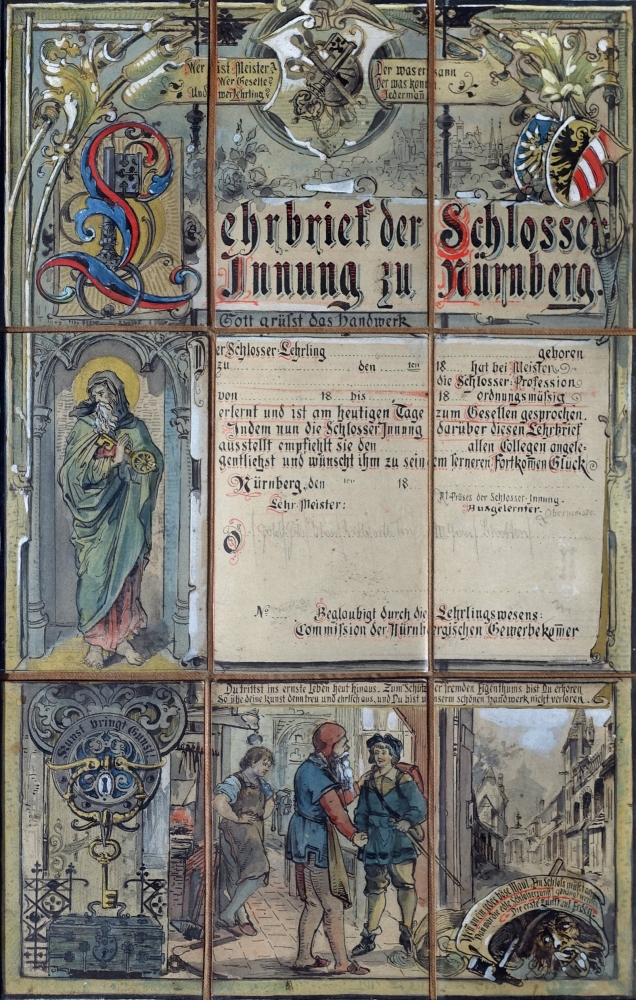 Wer ist Meister?
Wer Geselle?
Und wer Lehrling?
Der was ersann
Der was konn
Jedermañ
Lehrbrief der Schlosser-
Innung zu Nürnberg.
Gott grüsst das Handwerk
Der Schlosser-Lehrling geboren
zu den ten 18 hat bei Meister
die Schlosser-Profession
von 18 bis 18 ordnungsmäsig
erlernt und ist am heutigen Tage zum Gesellen gesprochen.
Indem nun die Schlosser Innung darüber diesen Lehrbrief
ausstellt empfiehlt sie den allen Collegen angele-
gentlichst und wünscht ihm zu seinem ferneren Fortkom̄en Glück
Nürnberg, den ten 18
Lehr-Meister:
Präses der Schlosser-Innung.
Ausgelernter.
Obermeister
No Beglaubigt durch die Lehrlingswesens:
Commission der Nürnbergischen Gewerbekam̄er
Du trittst ins ernste Leben heut hinaus. Zum Schutz der fremden Eigenthums bist Du erkoren
So übe deine Kunst denn treu und ehrlich aus, und Du bist unserem schönen Handwerk nicht verloren.
Kunst bringt Gunst
Die erste Zunft auf Erden